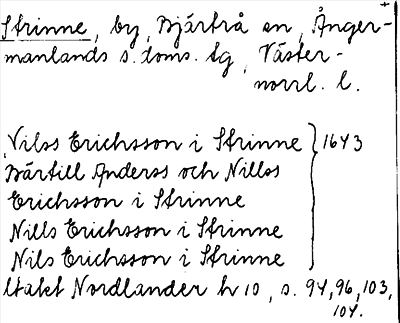 Strinne, by, Bjärtrå sn, Ånger-
manlands s. doms. tg, Väster-
norrl. l.
Nilss Erichsson i Strinne } 1643
Bärtill Anderss och Nillss
Erichsson i Strinne
Nills Erichsson i Strinne
Nils Erichsson i Strinne
Nordlander h 10, s. 94, 96, 103,
104.